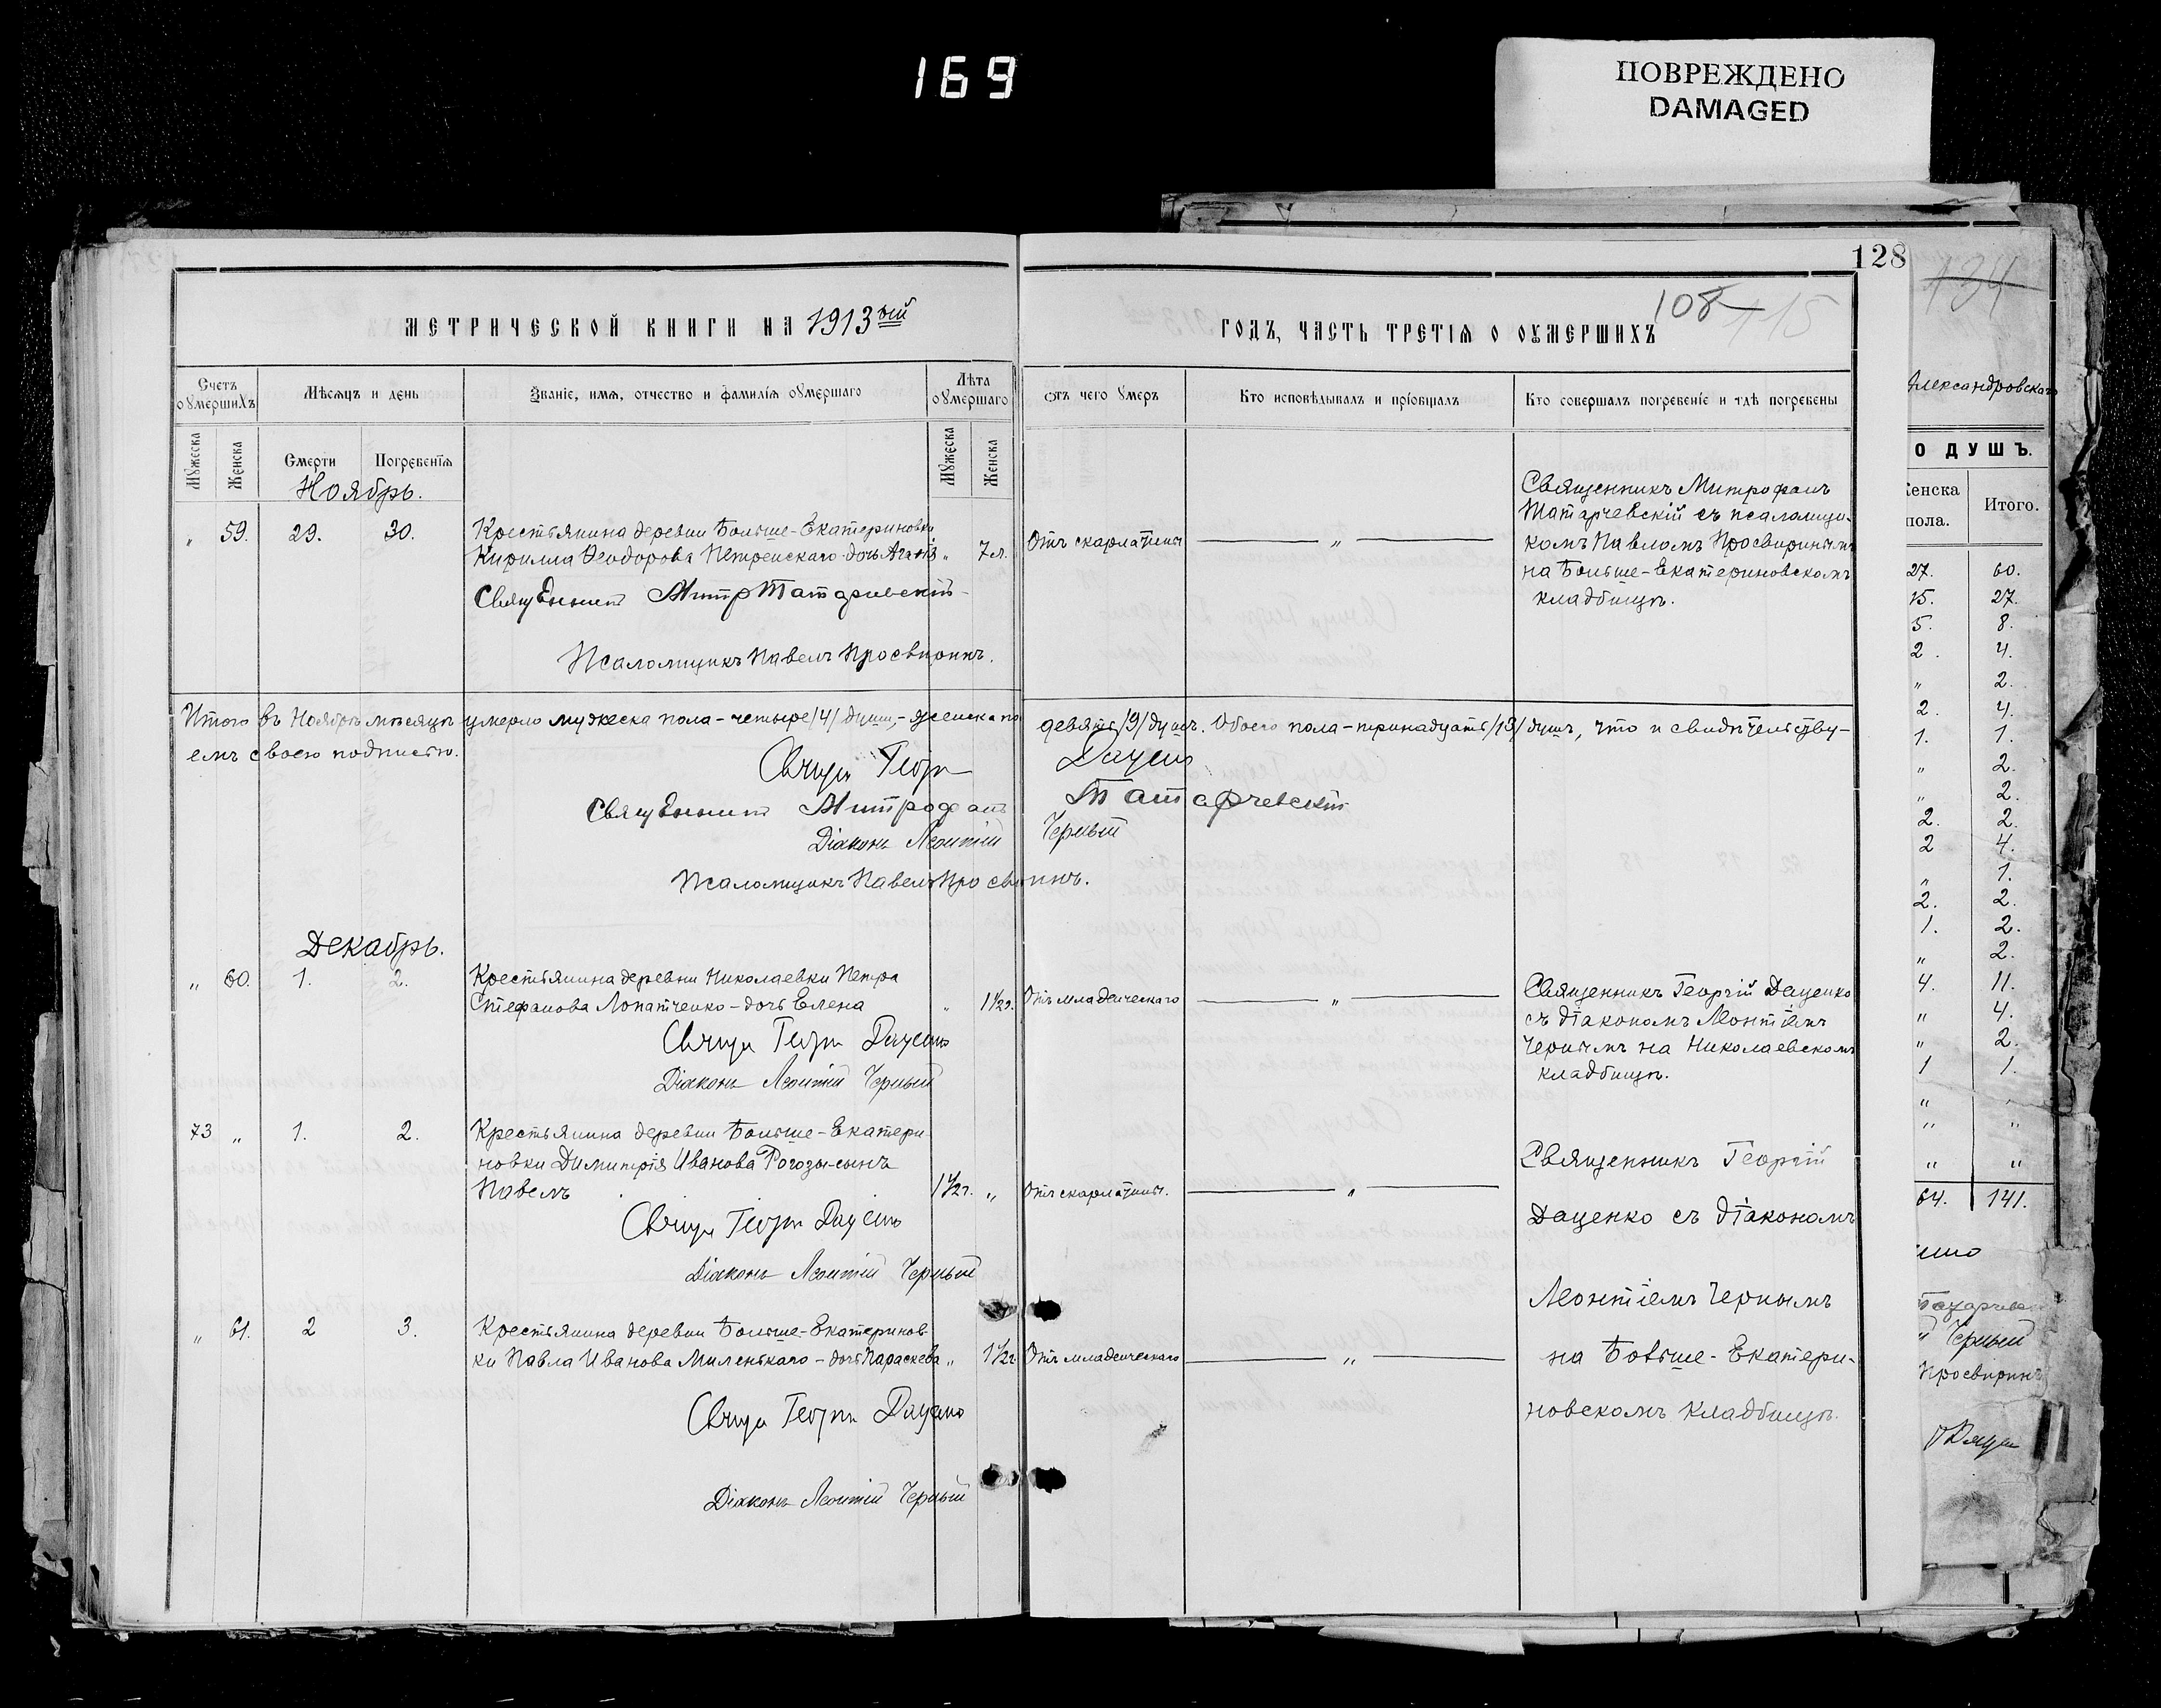 169
ПОВРЕЖДЕНО
DAMAGED
128
134
108
115
МЕТРИЧЕСКОЙ КНИГИ НА 1913ый
ГОДЪ, ЧАСТЬ ТРЕТІЯ О ОУМЕРШИХЪ
Счетъ оумершихъ
Мѣсяцъ и день
Званіе, имя, отчество и фамилія оумершаго
Лѣта оумершаго
отъ чего умеръ
Кто исповѣдывалъ и пріобщалъ
Кто совершалъ погребеніе и гдѣ погребены
Мужеска
Женска
Смерти
Погребенія
Мужеска
Женска
Ноябрь.
„ 59. 29. 30. Крестьянина деревни Больше-Екатериновки
Кирилла Ѳеодорова Петренскаго дочь Агаѳія „ 7 л. Отъ скарлатины „
Священникъ Митр Татарчевскій
Псаломщикъ Павелъ Просвиринъ.
Священникъ Митрофанъ
Татарчевскій съ псаломщи-
комъ Павломъ Просвиринымъ
на Больше-Екатериновскомъ
кладбищѣ.
Итого въ Ноябрѣ мѣсяцѣ умерло мужеска пола - четыре /4/ души, - женска по девять /9/ душъ. Обоего пола - тринадцать /13/ душъ, что и свидѣтельству-
емъ своею подписью.
Свящ Георг Даценко
Священникъ Митрофанъ Татарчевскій
Діаконъ Леонтій Черный
Псаломщикъ Павелъ Просвиринъ.
Декабрь.
„ 60. 1. 2. Крестьянина деревни Николаевки Петра
Стефанова Лопатченко - дочь Елена „ 1 1/2 г. Отъ младенческаго „
Свящ Георг Даценко
Діаконъ Леонтій Черный
Священникъ Георгій Даценко
съ діакономъ Леонтіемъ
Чернымъ на Николаевскомъ
кладбищѣ.
73 „ 1. 2. Крестьянина деревни Больше-Екатери-
новки Димитрія Иванова Рогозы-сынъ
Павелъ 1 1/2 г. „ Отъ скарлатины. „
Свящ Георг Даценко
Діаконъ Леонтій Черный
„ 61. 2 3. Крестьянина деревни Больше-Екатеринов-
ки Павла Иванова Миленькаго - дочь Параскева „ 1 1/2 г. Отъ младенческаго „
Свящ Георг Даценко
Діаконъ Леонтій Черный
Священникъ Георгій
Даценко съ діакономъ
Леонтіемъ Чернымъ
на Больше-Екатери-
новскомъ кладбищѣ.
Александровскаго
О ДУШЪ.
Женска пола.
Итого.
27. 60.
15. 27.
5. 8.
2. 4.
„ 2.
2. 4.
1. 1.
„ 2.
„ 2.
2. 2.
2 4.
„ 1.
2. 2.
1. 2.
„ 2.
4. 11.
„ 4.
„ 2.
1 1.
„ „
„ „
„ „
64. 141.
Черный
Просвиринъ